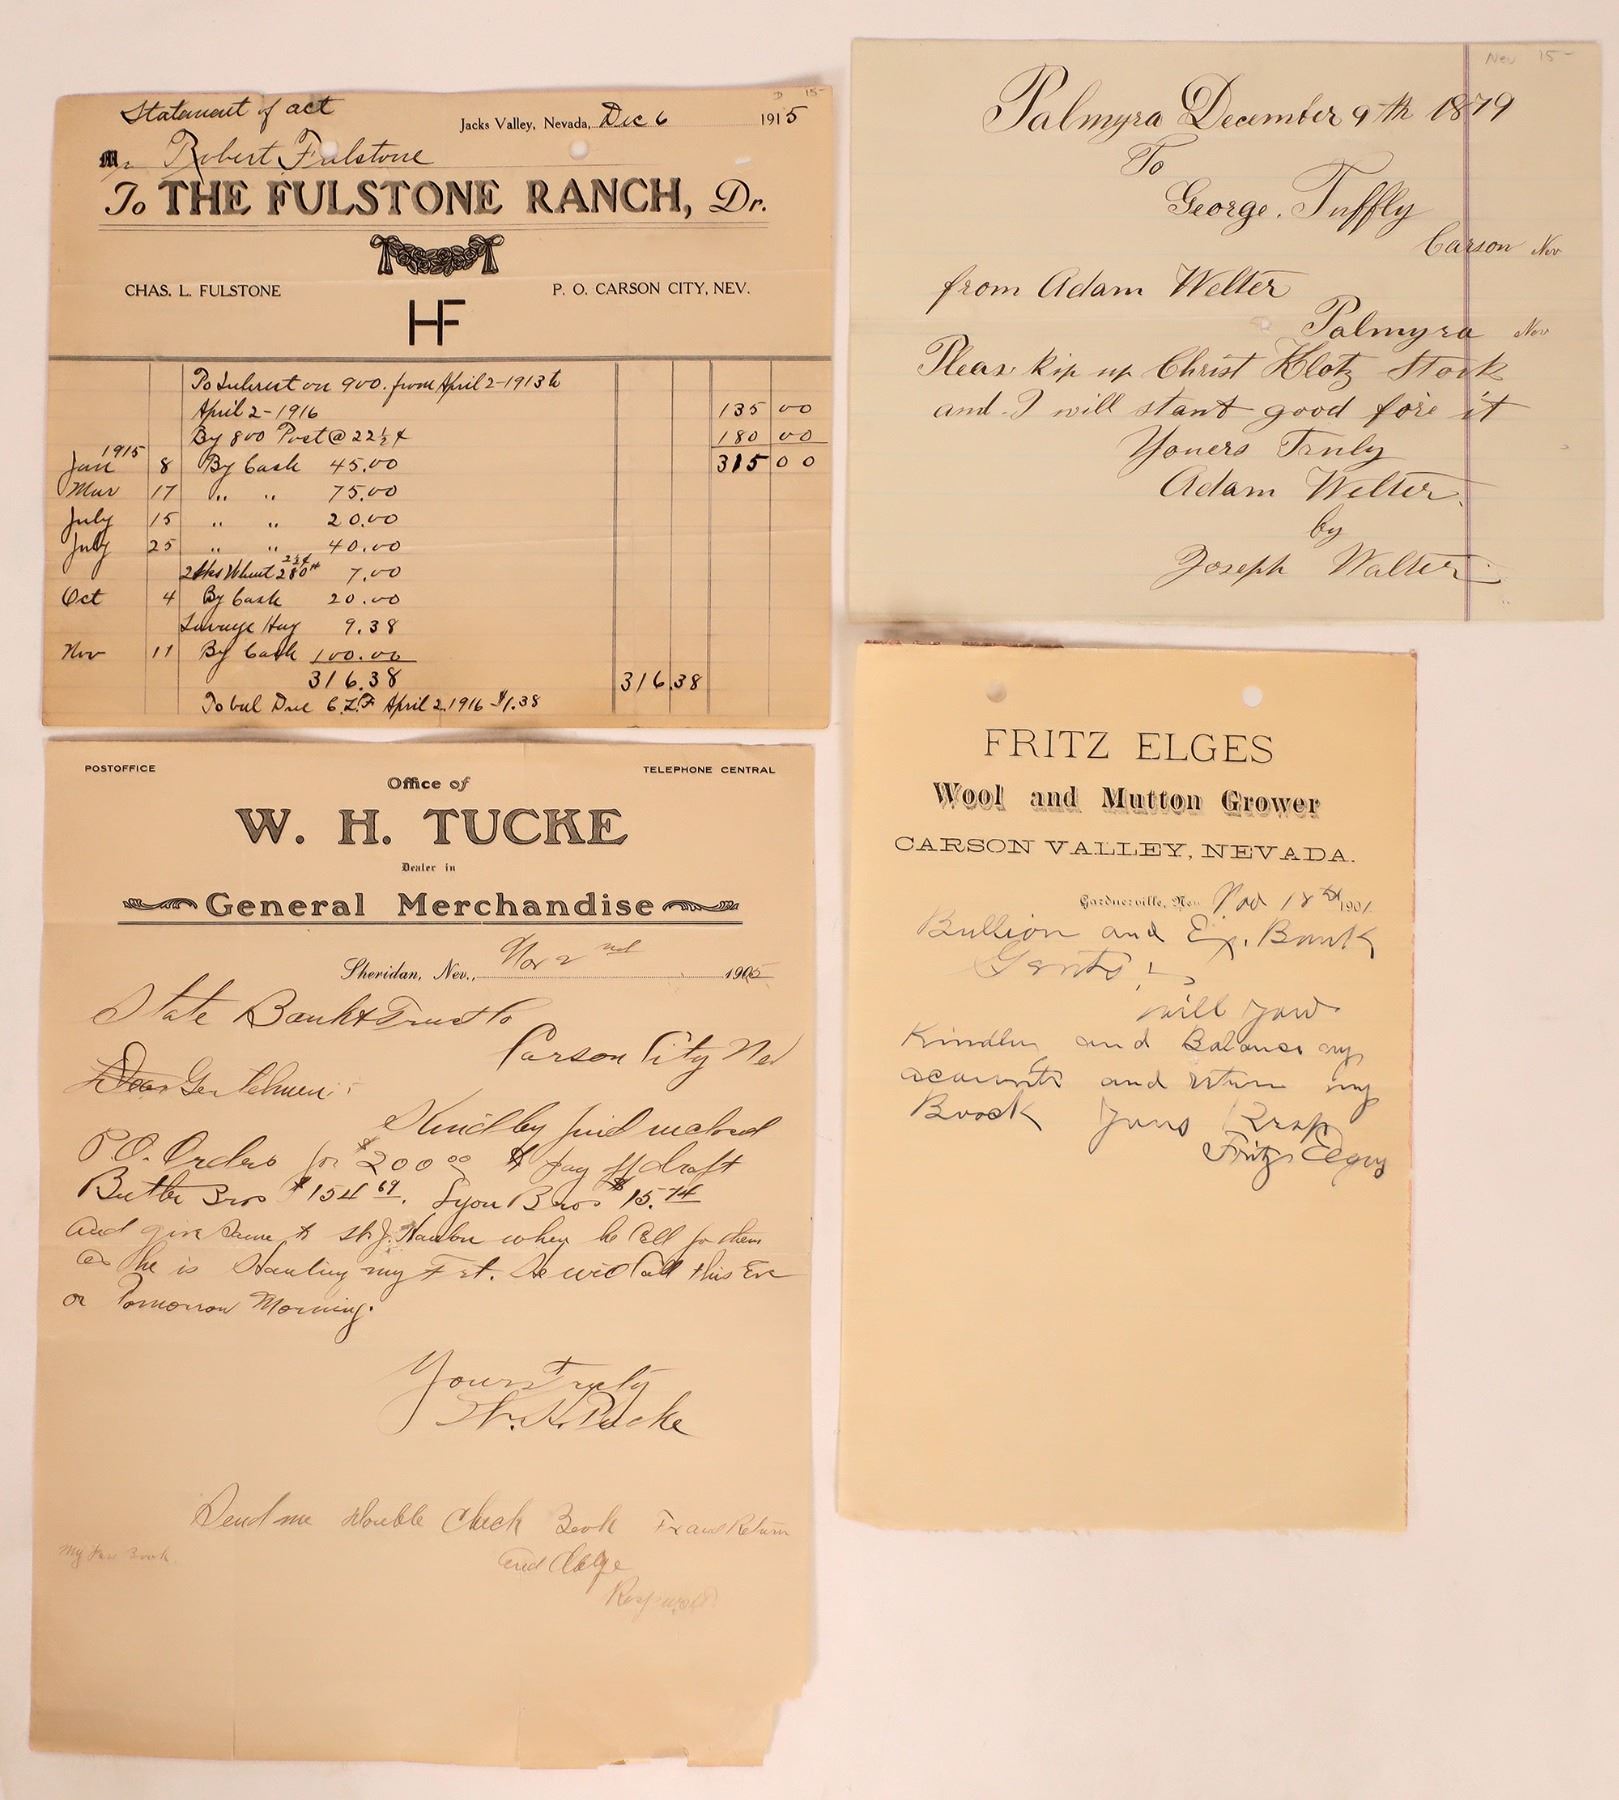 D 15-
Statement of act
Jacks Valley, Nevada, Dec 6 1915
Mr Robert Fulstone
To THE FULSTONE RANCH, Dr.
CHAS. L. FULSTONE P. O. CARSON CITY, NEV.
HF
To Interest on 900. from April 2-1913 to
April 2-1916 135 00
By 800 Post @ 22½ ¢ 180 00
1915
Jan 8 By Cash 45.00 315 00
Mar 17 " " 75.00
July 15 " " 20.00
July 25 " " 40.00
2½¢
2 sks Wheat 280# 7.00
Oct 4 By Cash 20.00
Hay 9.38
Nov 11 By Cash 100.00
316.38 316.38
To bal Due C.L.F April 2, 1916 $1.38
Nev 15-
Palmyra December 9th 1879
To
George. Tuffly
Carson Nev
from Adam Welter
Palmyra Nev
Pleas kip up Christ Klotz Stock
and I will stant good fore it
Youers Truly
Adam Welter.
by
Joseph Walter
POSTOFFICE TELEPHONE CENTRAL
Office of
W. H. TUCKE
Dealer in
General Merchandise
Sheridan, Nev., Nov 2nd 1905
State Bank & Trust Co
Carson City Nev
Dear Gentlemen:
Kindley find inclosed
P.O. Orders for $200 00 to pay off draft
Butler Bros $154 69. Lyon Bros $15.74
and give same to when he Call for them
as he is Hauling my Frt. He will Call this Eve
or Tomorrow Morning.
Yours Truly
W. H. Tucke
Send me double Check Book Return
my Book
and Oblige
FRITZ ELGES
Wool and Mutton Grower
CARSON VALLEY, NEVADA.
Gardnerville, Nev. Nov 18th 1901
Bullion and Ex. Bank
Gents!
will you
Kindley and Balance my
acounts and return my
Boock Yours Resp
Fritz Elges